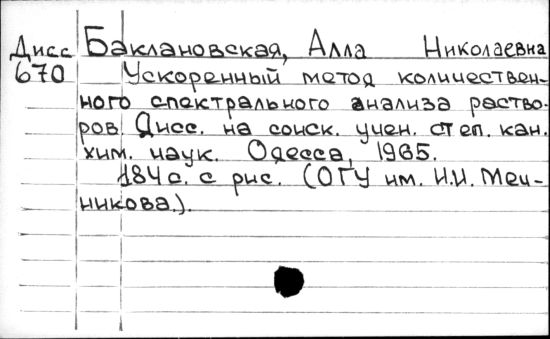 Дисс Баклановская, Алла Николаевна
670 Ускоренный метод количествен-
ного спектрального анализа раство-
ров. Дисс. на соиск. учен. степ. кан.
хим. наук. Одесса, 1965.
184 с. с рис. (ОГУ им. И.И. Меч-
никова.).